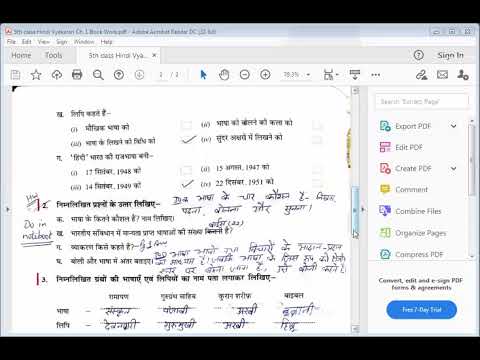 5th class Hindi Vyakaran Ch. 1 Book Work.pdf - Adobe Acrobat Reader DC (32-bit)
5th class Hindi Vya...
Sign In
2 / 2
79.3%
Share
Search 'Export PDF'
Export PDF
Edit PDF
Create PDF
Comment
Combine Files
Organize Pages
Compress PDF
Convert, edit and e-sign PDF forms & agreements
Free 7-Day Trial
ख. लिपि कहते हैं–
(i) मौखिक भाषा को
(ii) भाषा को बोलने की कला को
(iii) भाषा के लिखने की विधि को
(iv) सुंदर अक्षरों में लिखने को
ग. 'हिंदी' भारत की राजभाषा बनी–
(i) 17 दिसंबर, 1948 को
(ii) 15 अगस्त, 1947 को
(iii) 14 सितंबर, 1949 को
(iv) 22 दिसंबर, 1951 को
2. निम्नलिखित प्रश्नों के उत्तर लिखिए–
Do in notebook
भाषा के चार कौशल हैं- लिखना, पढ़ना, बोलना और सुनना।
क. भाषा के कितने कौशल हैं? नाम लिखिए।
ख. भारतीय संविधान में मान्यता प्राप्त भाषाओं की संख्या कितनी है?
बाईस (22)
ग. व्याकरण किसे कहते हैं?
घ. बोली और भाषा में अंतर बताइए।
3. निम्नलिखित ग्रंथों की भाषाएँ एवं लिपियों का नाम पता लगाकर लिखिए–
रामायण गुरुग्रंथ साहिब कुरान शरीफ़ बाइबल
भाषा – संस्कृत पंजाबी अरबी इब्रानी
लिपि – देवनागरी गुरुमुखी अरबी हिब्रू